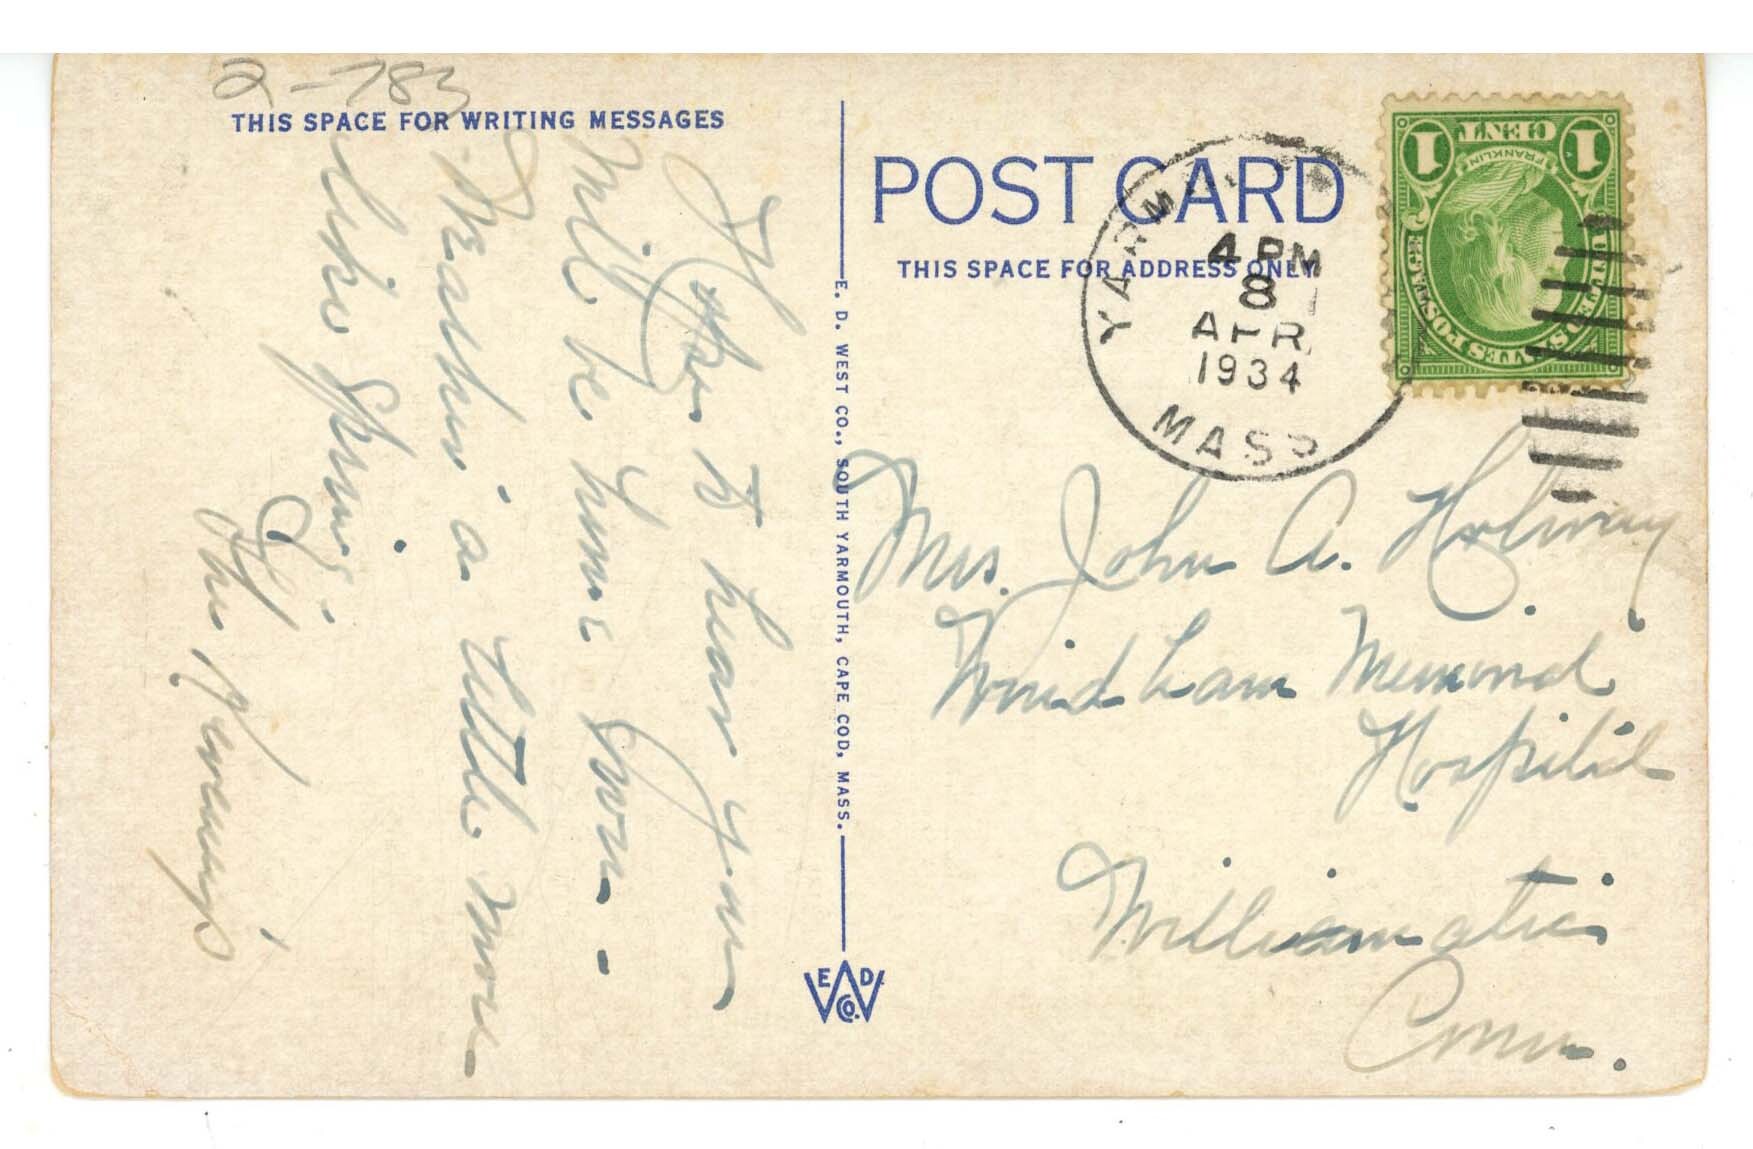 2-783
THIS SPACE FOR WRITING MESSAGES
Hope to hear you
will be home soon -
Weather is a little more
like Spring.
The
E. D. WEST CO., SOUTH YARMOUTH, CAPE COD, MASS.
E W D
CO.
POST CARD
THIS SPACE FOR ADDRESS ONLY
YARM
4 PM
8
APR.
1934
MASS
1 CENT 1
FRANKLIN
UNITED STATES POSTAGE
Mrs. John A. Holway
Windham Memorial
Hospital
Williamatic
Conn.